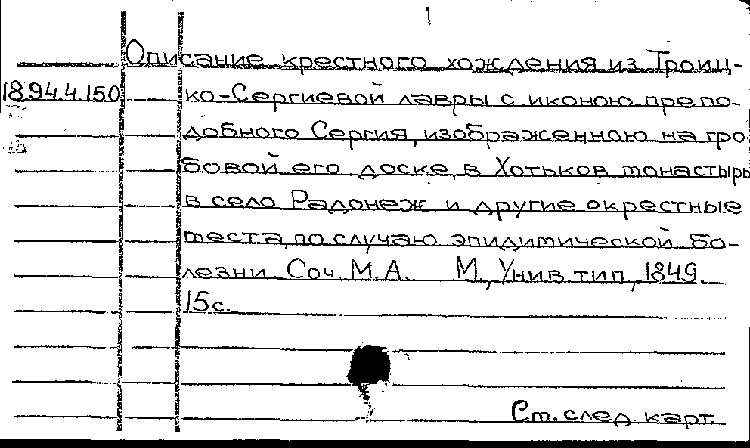 Описание крестного хождения из Троиц-
18.94.4.150 ко-Сергиевой лавры с иконою препо-
добного Сергия, изображенною на гро
бовой его доске, в Хотьков монастырь
в село Радонеж и другие окрестные
места, по случаю эпидитической бо-
лезни Соч. М.А. М., Унив. тип., 1849.
15с.
См. след. карт.